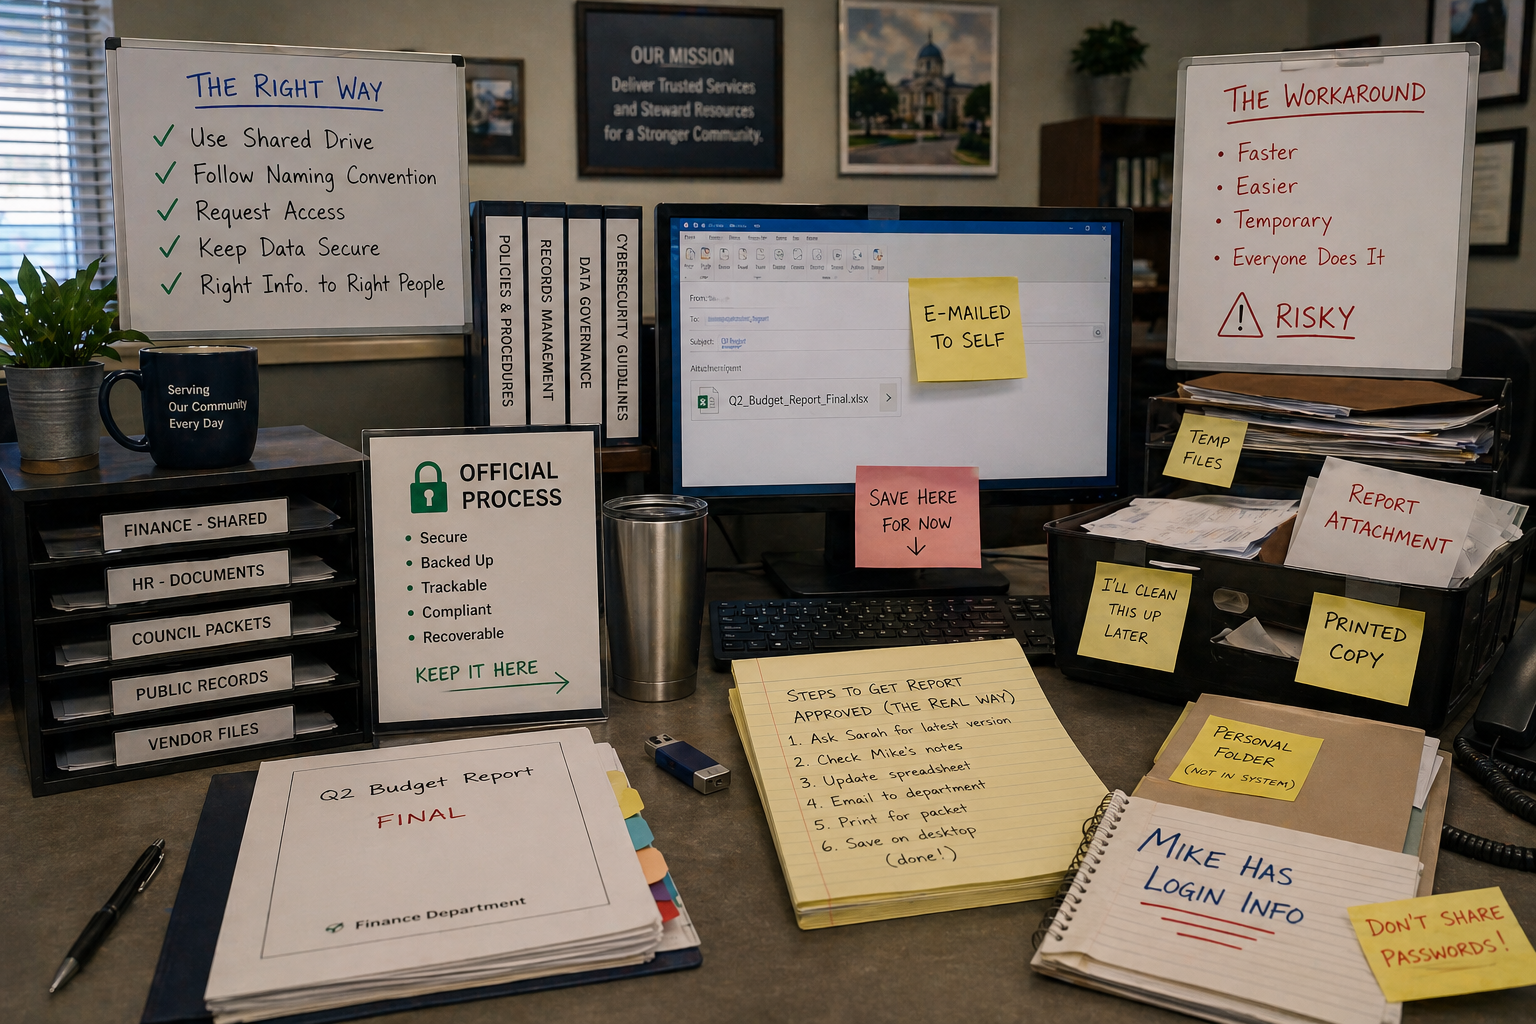 THE RIGHT WAY
✓ Use Shared Drive
✓ Follow Naming Convention
✓ Request Access
✓ Keep Data Secure
✓ Right Info. to Right People
OUR MISSION
Deliver Trusted Services
and Steward Resources
for a Stronger Community.
THE WORKAROUND
• Faster
• Easier
• Temporary
• Everyone Does It
! RISKY
POLICIES & PROCEDURES
RECORDS MANAGEMENT
DATA GOVERNANCE
CYBERSECURITY GUIDLINES
From:
To:
Subject:
Q2_Budget_Report_Final.xlsx
E-MAILED
TO SELF
SAVE HERE
FOR NOW
↓
Serving
Our Community
Every Day
FINANCE - SHARED
HR - DOCUMENTS
COUNCIL PACKETS
PUBLIC RECORDS
VENDOR FILES
OFFICIAL
PROCESS
• Secure
• Backed Up
• Trackable
• Compliant
• Recoverable
KEEP IT HERE
TEMP
FILES
REPORT
ATTACHMENT
I'LL CLEAN
THIS UP
LATER
PRINTED
COPY
Q2 Budget Report
FINAL
Finance Department
STEPS TO GET REPORT
APPROVED (THE REAL WAY)
1. Ask Sarah for latest version
2. Check Mike's notes
3. Update spreadsheet
4. Email to department
5. Print for packet
6. Save on desktop
(done!)
PERSONAL
FOLDER
(NOT IN SYSTEM)
MIKE HAS
LOGIN INFO
DON'T SHARE
PASSWORDS!